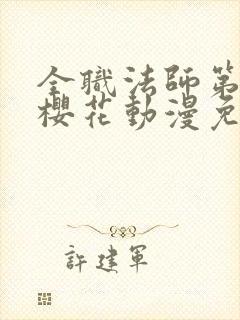 全職法師第
櫻花動漫免
許建軍